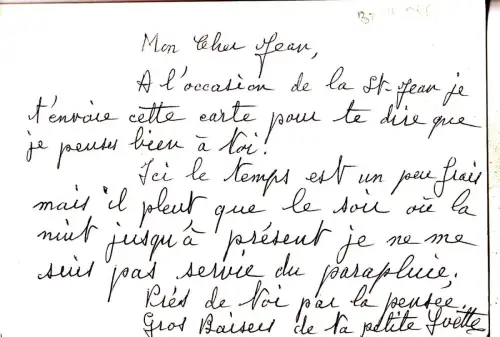 Mon Cher Jean,
A l'occasion de la St-Jean je
t'envoie cette carte pour te dire que
je penses bien à toi!
Ici le temps est un peu frais
mais il pleut que le soir où la
nuit jusqu'à présent je ne me
suis pas servie du parapluie.
Près de toi par la pensée.
Gros Baisers de ta petite Yvette